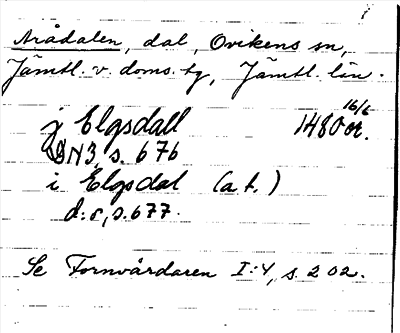 Arådalen, dal, Ovikens sn,
Jämtl. v. doms. tg, Jämtl. län.
j Elgsdall 1480 16/6 or.
DN3, s. 676
i Elgsdal (a.t.)
d:o, s. 677.
Se Fornvårdaren I:4, s. 202.